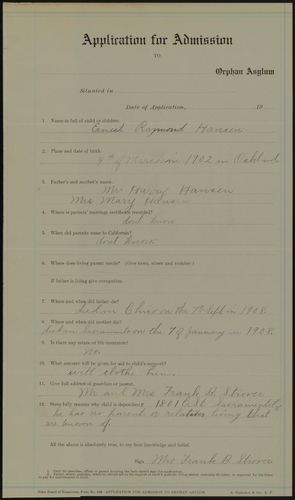 Application for Admission
TO
Orphan Asylum
Situated in
Date of Application, 19
1. Name in full of child or children:
Ernest Raymond Hansen
2. Place and date of birth.
9th of March in 1902 in Oakland
3. Father's and mother's name.
Mr Harry Hansen
Mrs Mary Hansen
4. Where is parents' marriage certificate recorded?
dont know
5. When did parents come to California?
dont know
6. Where does living parent reside? (Give town, street and number.)
If father is living give occupation.
7. Where and when did father die?
died in Chico on the 7th Sept in 1908.
8. Where and when did mother die?
died in on the 7 of January in 1908.
9. Is there any estate or life insurance?
no.
10. What amount will be given for aid to child's support?
will clothe him.
11. Give full address of guardian or person
Mr and Mrs Frank B Strover
12. State fully reasons why child is dependent. 1801 Sacramento
he has no parents or relatives living that
are known of
All the above is absolutely true, to my best knowledge and belief.
Sign Mrs. Frank B Strover